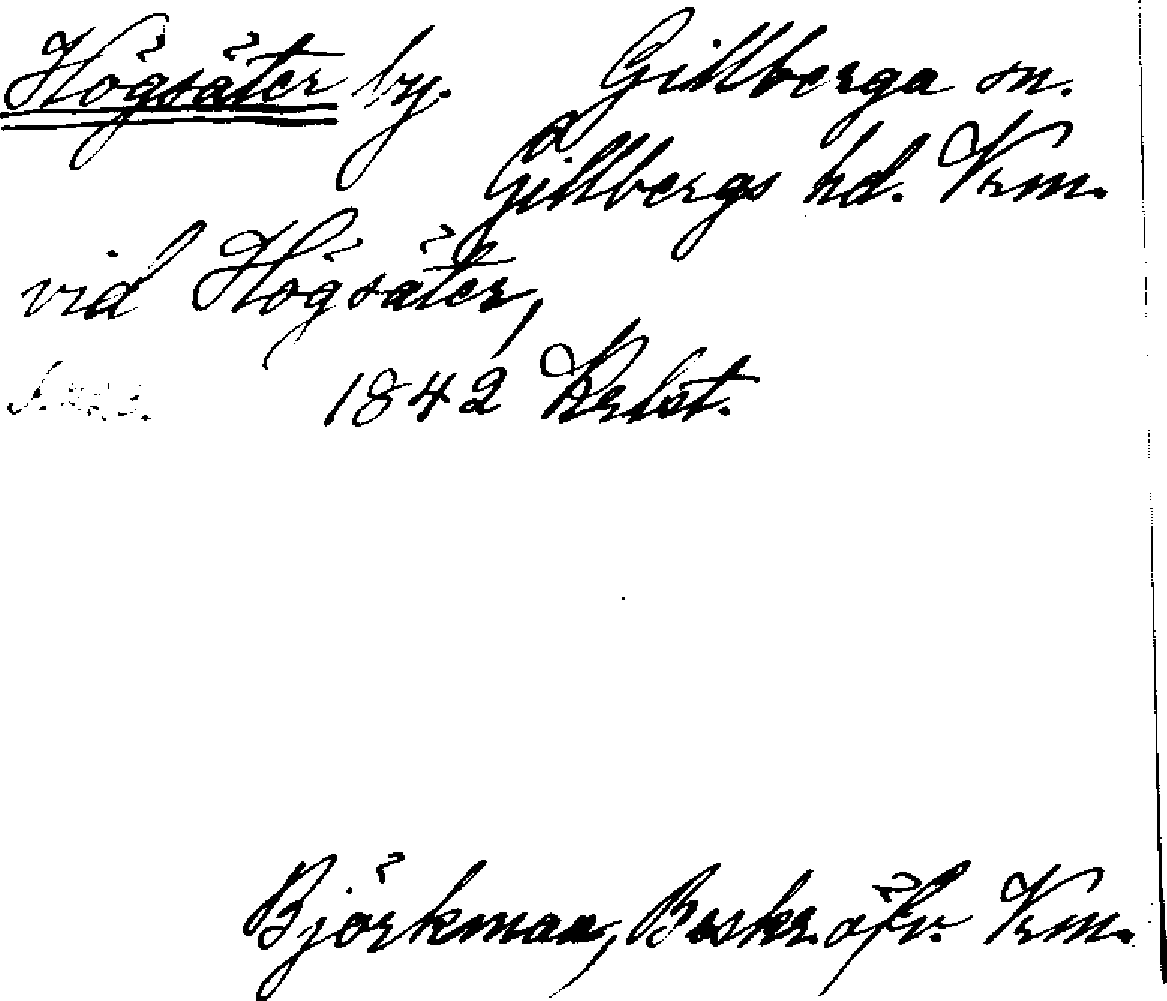 Högsäter by. Gillberga sn.
Gillbergs hd. Vrm.
vid Högsäter,
1842 Krbst.
Björkman, Beskr. öfv. Vrm.